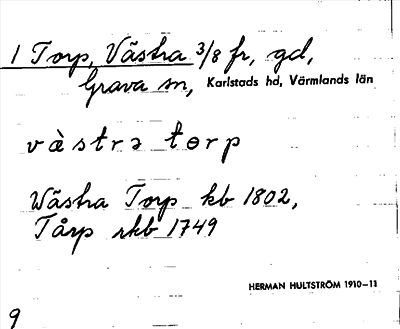 1 Torp, Västra 3/8 fr, gd,
Grava sn, Karlstads hd, Värmlands län
vàstrə tɵrp
Wästra Torp kb 1802,
Tårp rkb 1749
HERMAN HULTSTRÖM 1910–11
9